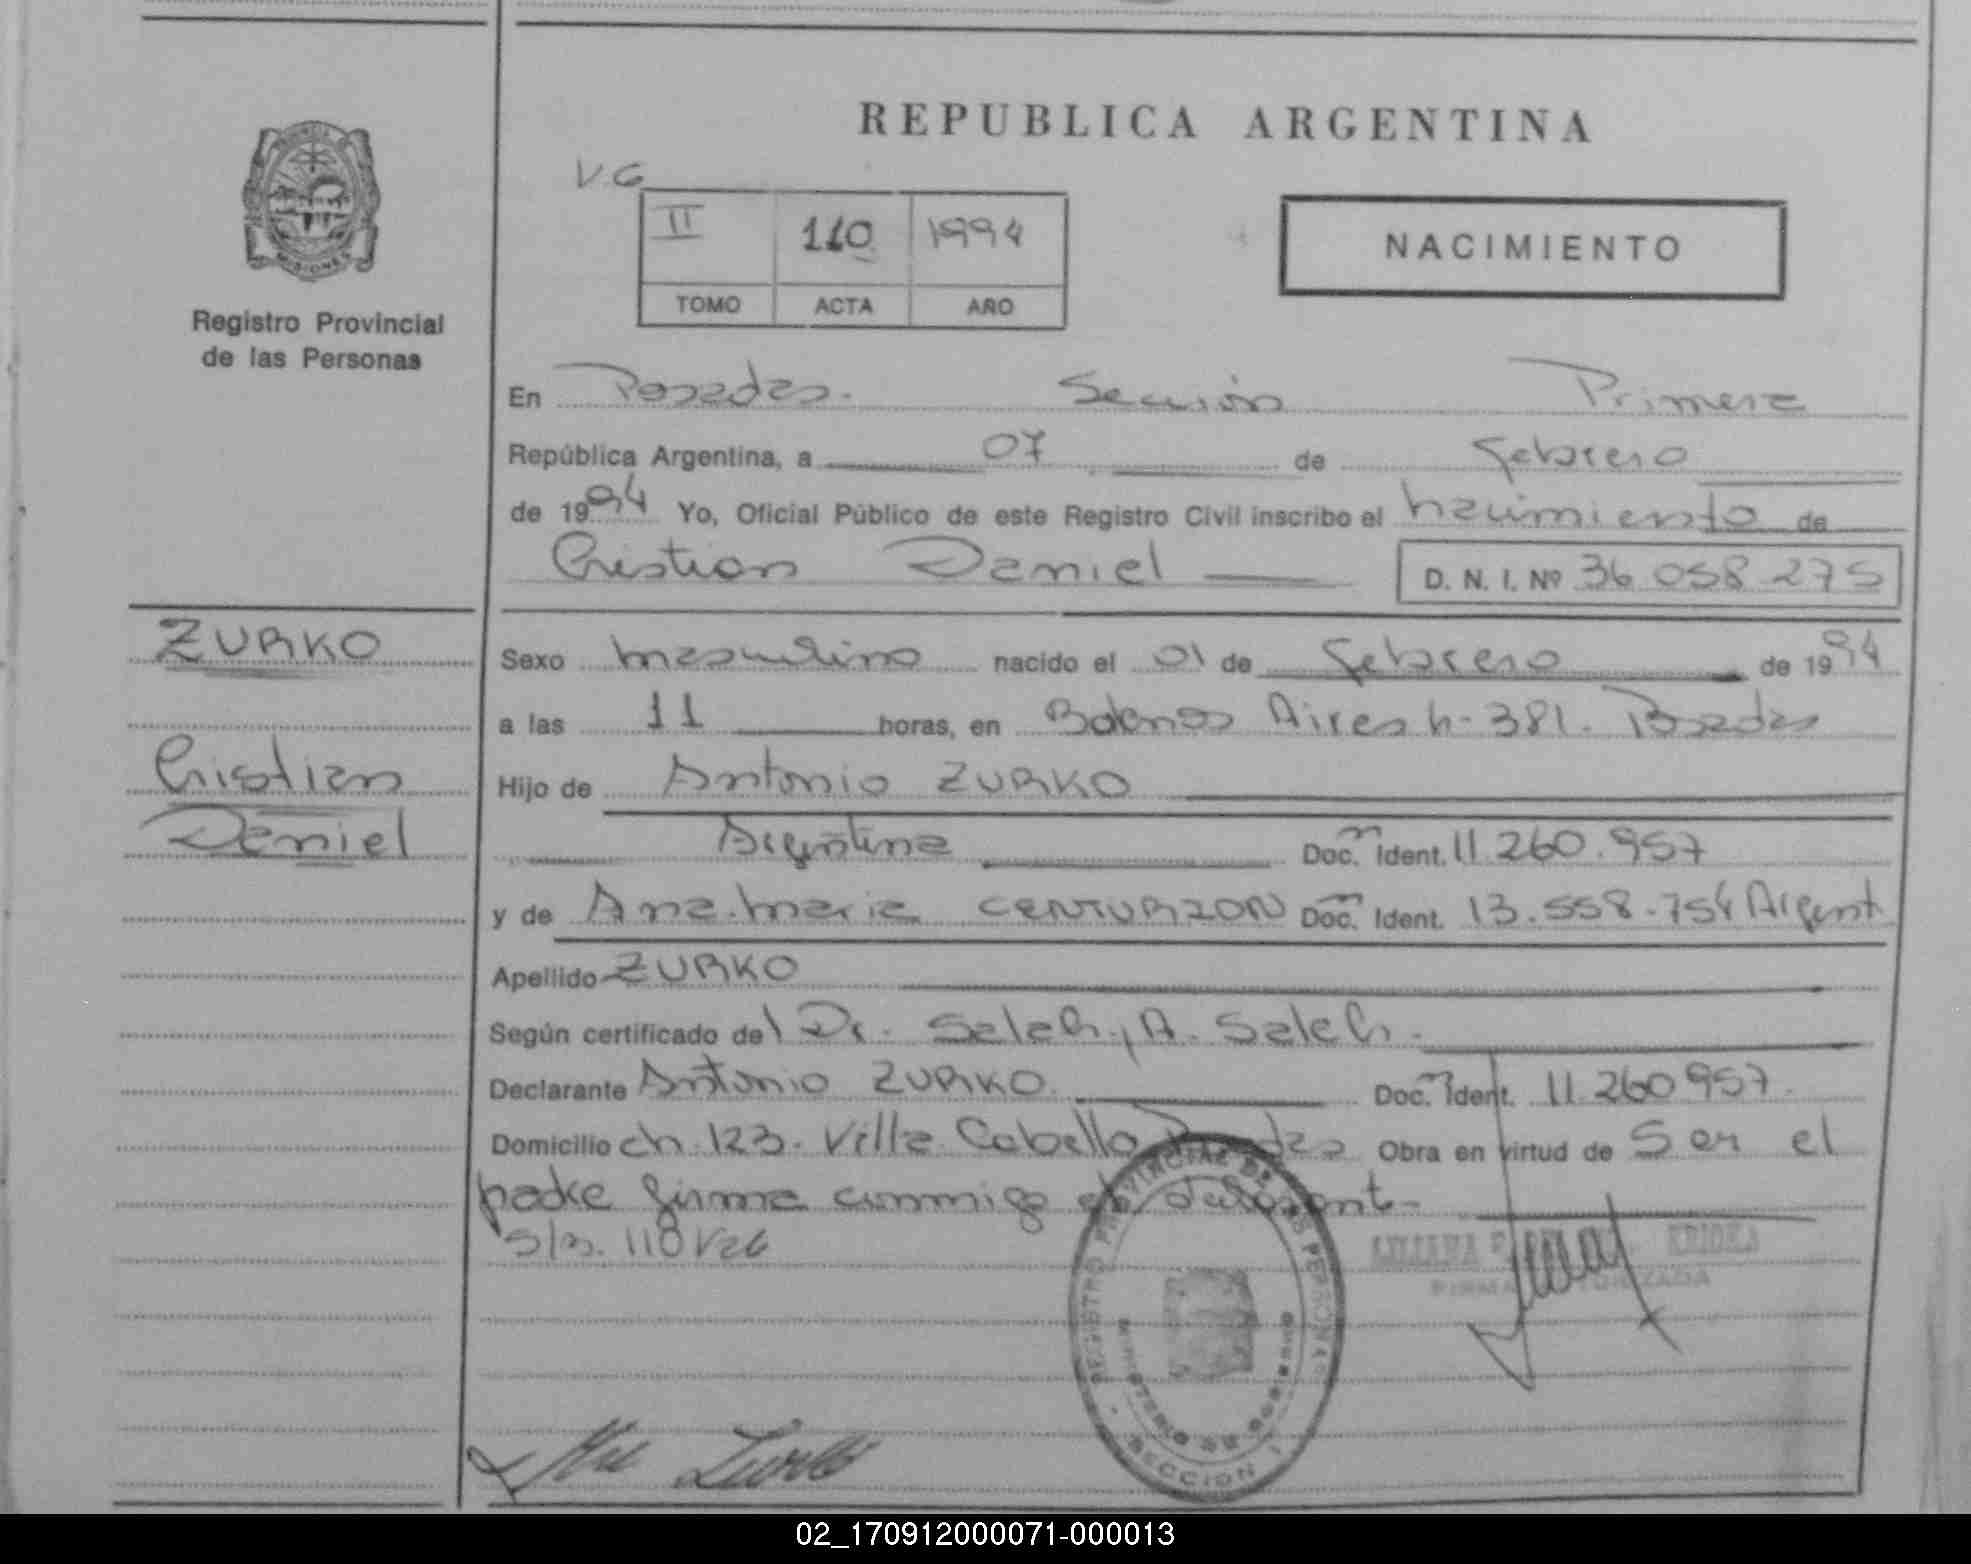 REPUBLICA ARGENTINA
V.G
II 110 1994
TOMO ACTA AÑO
NACIMIENTO
MISIONES
Registro Provincial
de las Personas
En Posadas. Sección Primera
República Argentina, a 07 de febrero
de 1994 Yo, Oficial Público de este Registro Civil inscribo el nacimiento de
Cristian Daniel D. N. I. Nº 36 058 275
ZURKO
Cristian
Daniel
Sexo masculino nacido el 01 de febrero de 1994
a las 11 horas, en Buenos Aires n- 381. Posadas
Hijo de Antonio ZURKO
Argentina Doc. Ident. 11.260.957
y de Ana María CENTURION Doc. Ident. 13.558.754 Argent
Apellido ZURKO
Según certificado del Dr. Saleh, A. Saleh.
Declarante Antonio ZURKO. Doc. Ident. 11.260957.
Domicilio ch. 123. Villa Cabello Posadas Obra en virtud de Ser el
padre firma conmigo el
S/R. 110
LILIANA
FIRMA AUTORIZADA
REGISTRO PROVINCIAL DE LAS PERSONAS
MINISTERIO DE GOBIERNO
SECCION 1
Zurko
02_170912000071-000013